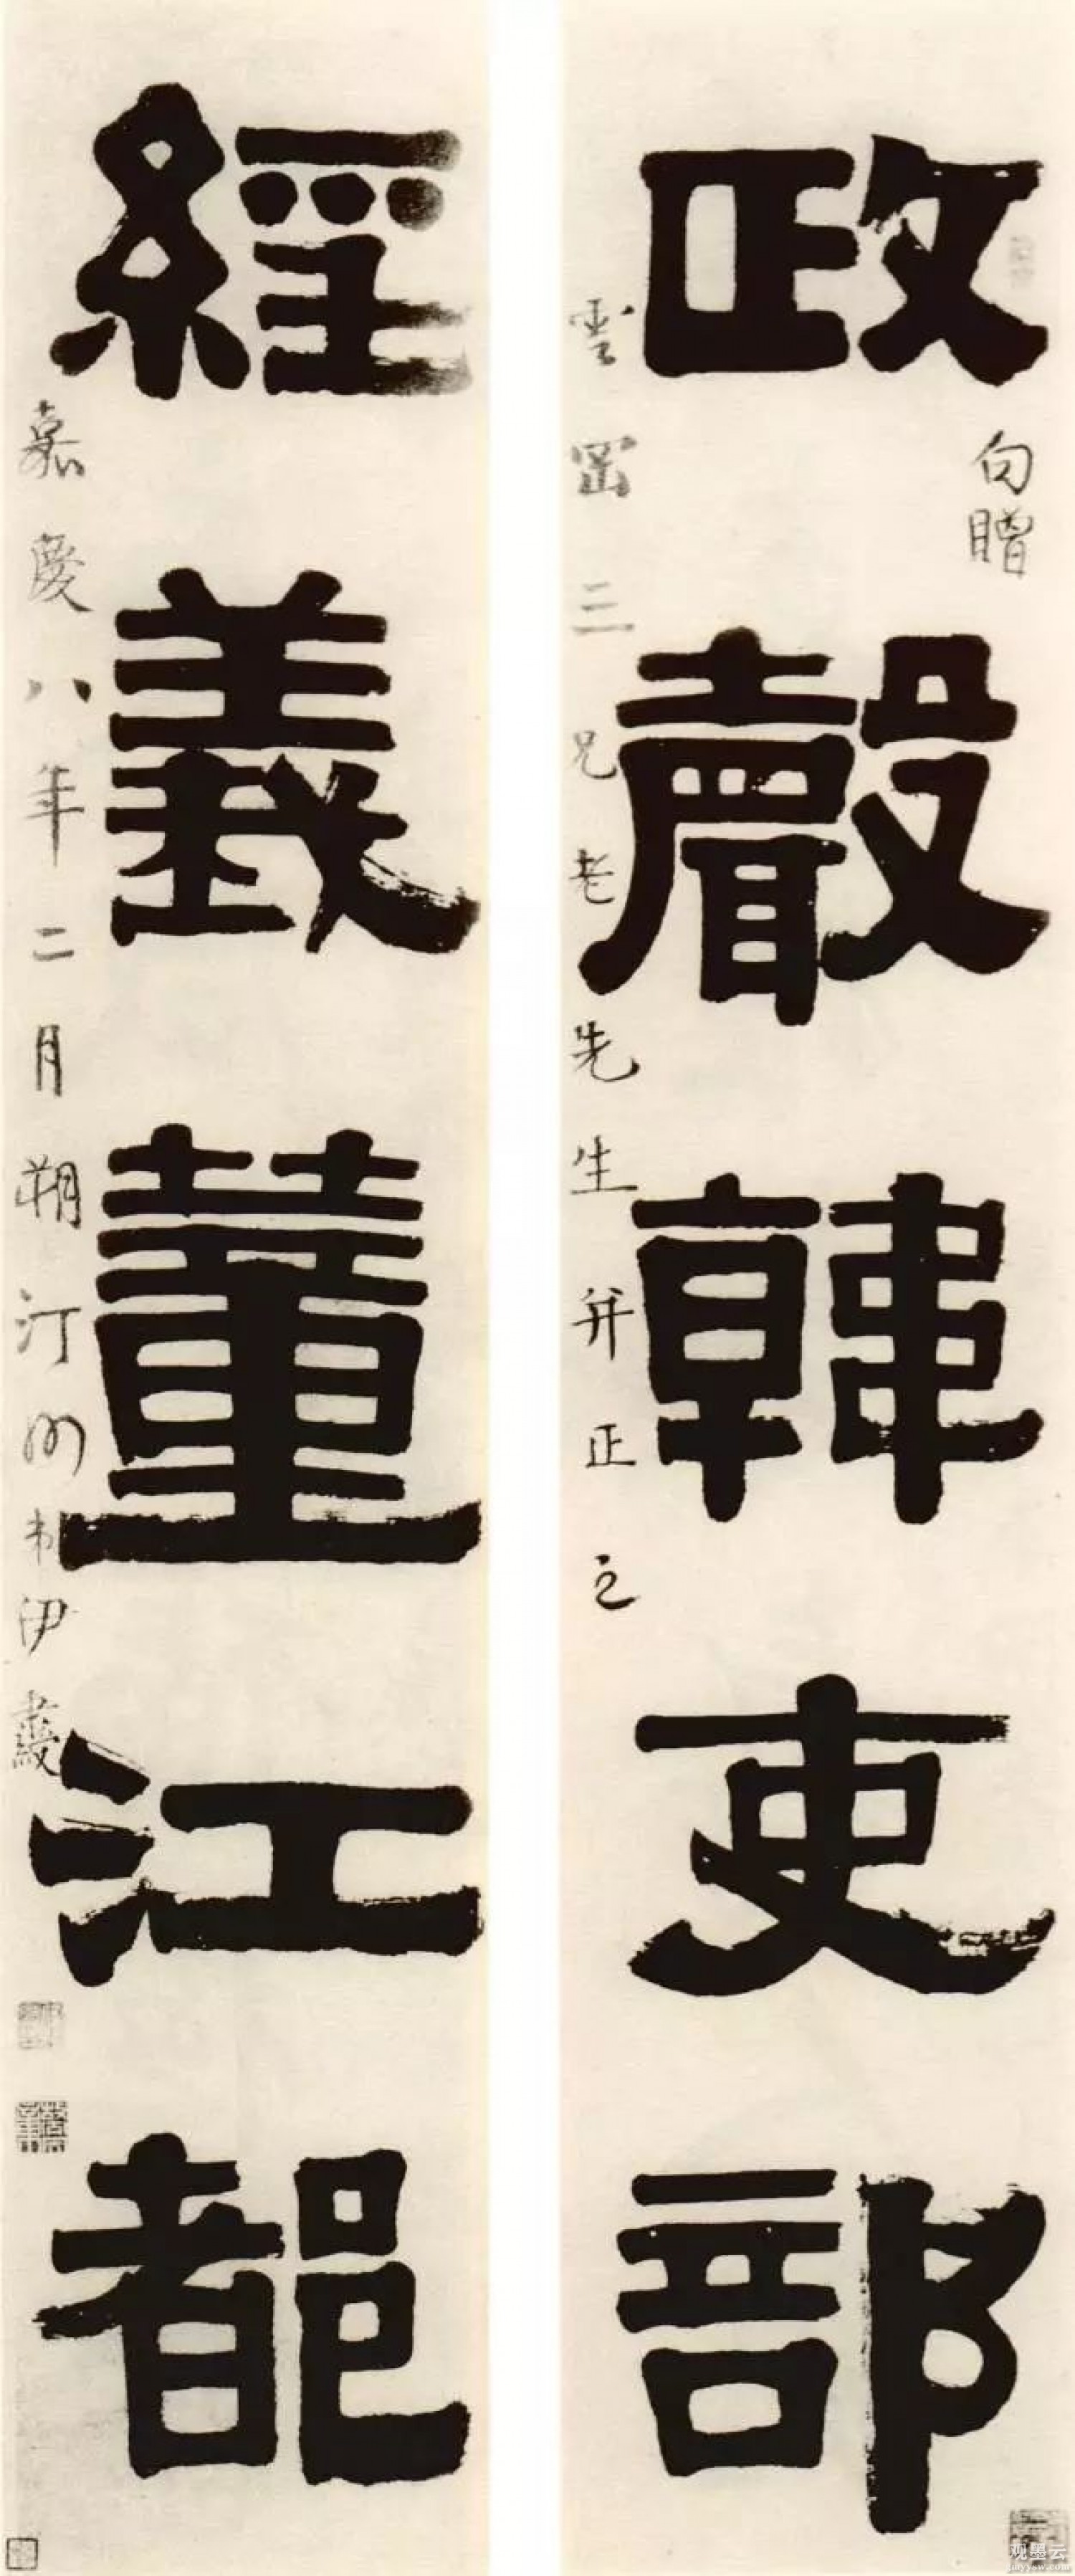 政聲韓吏部
句贈
雲岡三兄老先生并正之
經義董江都
嘉慶八年二月朔汀州弟伊秉綬
观墨云